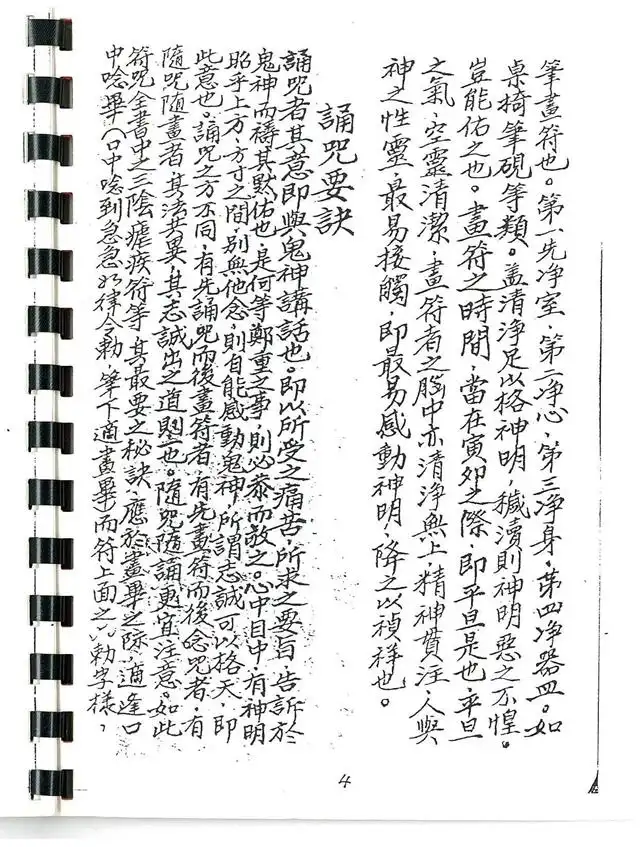 筆畫符也。第一先净室，第二净心，第三净身，第四净器皿。如
桌椅筆硯等類。盖清淨足以格神明，穢瀆則神明惡之不惶。
豈能佑之也。畫符之時間，當在寅卯之際，即平旦是也，平旦
之氣，空靈清潔，畫符者之胸中亦清淨無上，精神貫注，人與
神之性靈，最易接觸，即最易感動神明，降之以禎祥也。
誦咒要訣
誦咒者其意即與鬼神講話也。即以所受之痛苦，所求之要旨，告訴於
鬼神而禱其默佑也，是何等鄭重之事，則必恭而敬之。心中目中，有神明
昭乎上方，方寸之間，別無他念，則自能感動鬼神，所謂志誠可以格天，即
此意也。誦咒之方不同，有先誦咒而後畫符者，有先畫符而後唸咒者，有
隨咒隨畫者，其法共異，其志誠出之道則一也。隨咒隨誦更宜注意。如此
符咒全書中之三陰瘧疾符等，其最要之秘訣，應於畫畢之際，適逢口
中唸畢（口中唸到急急如律令勅，筆下適畫畢）而符上面之八勅字樣，
4